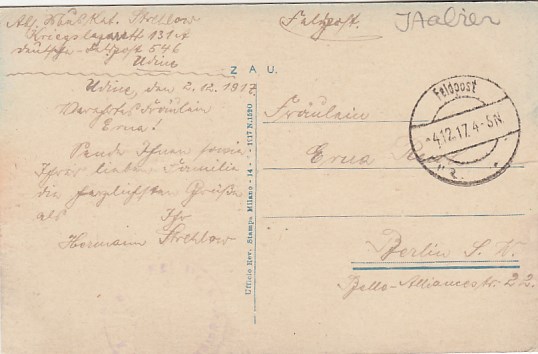 Abs. Strehlow
Kriegslazarett 131 A
Deutsche Feldpost 546
Udine
Feldpost.
Italien
Z A U.
Feldpost
4.12.17. 4-5N.
Udine, den 2.12.1917.
Verehrtes Fräulein
Erna!
Sende Ihnen sowie
Ihrer lieben Familie
die herzlichsten Grüße
als Ihr
Hermann Strehlow
Ufficio Rev. Stampa Milano - 14 - 
Fräulein
Erna
Berlin S. W.
Belle-Alliancestr. 22.